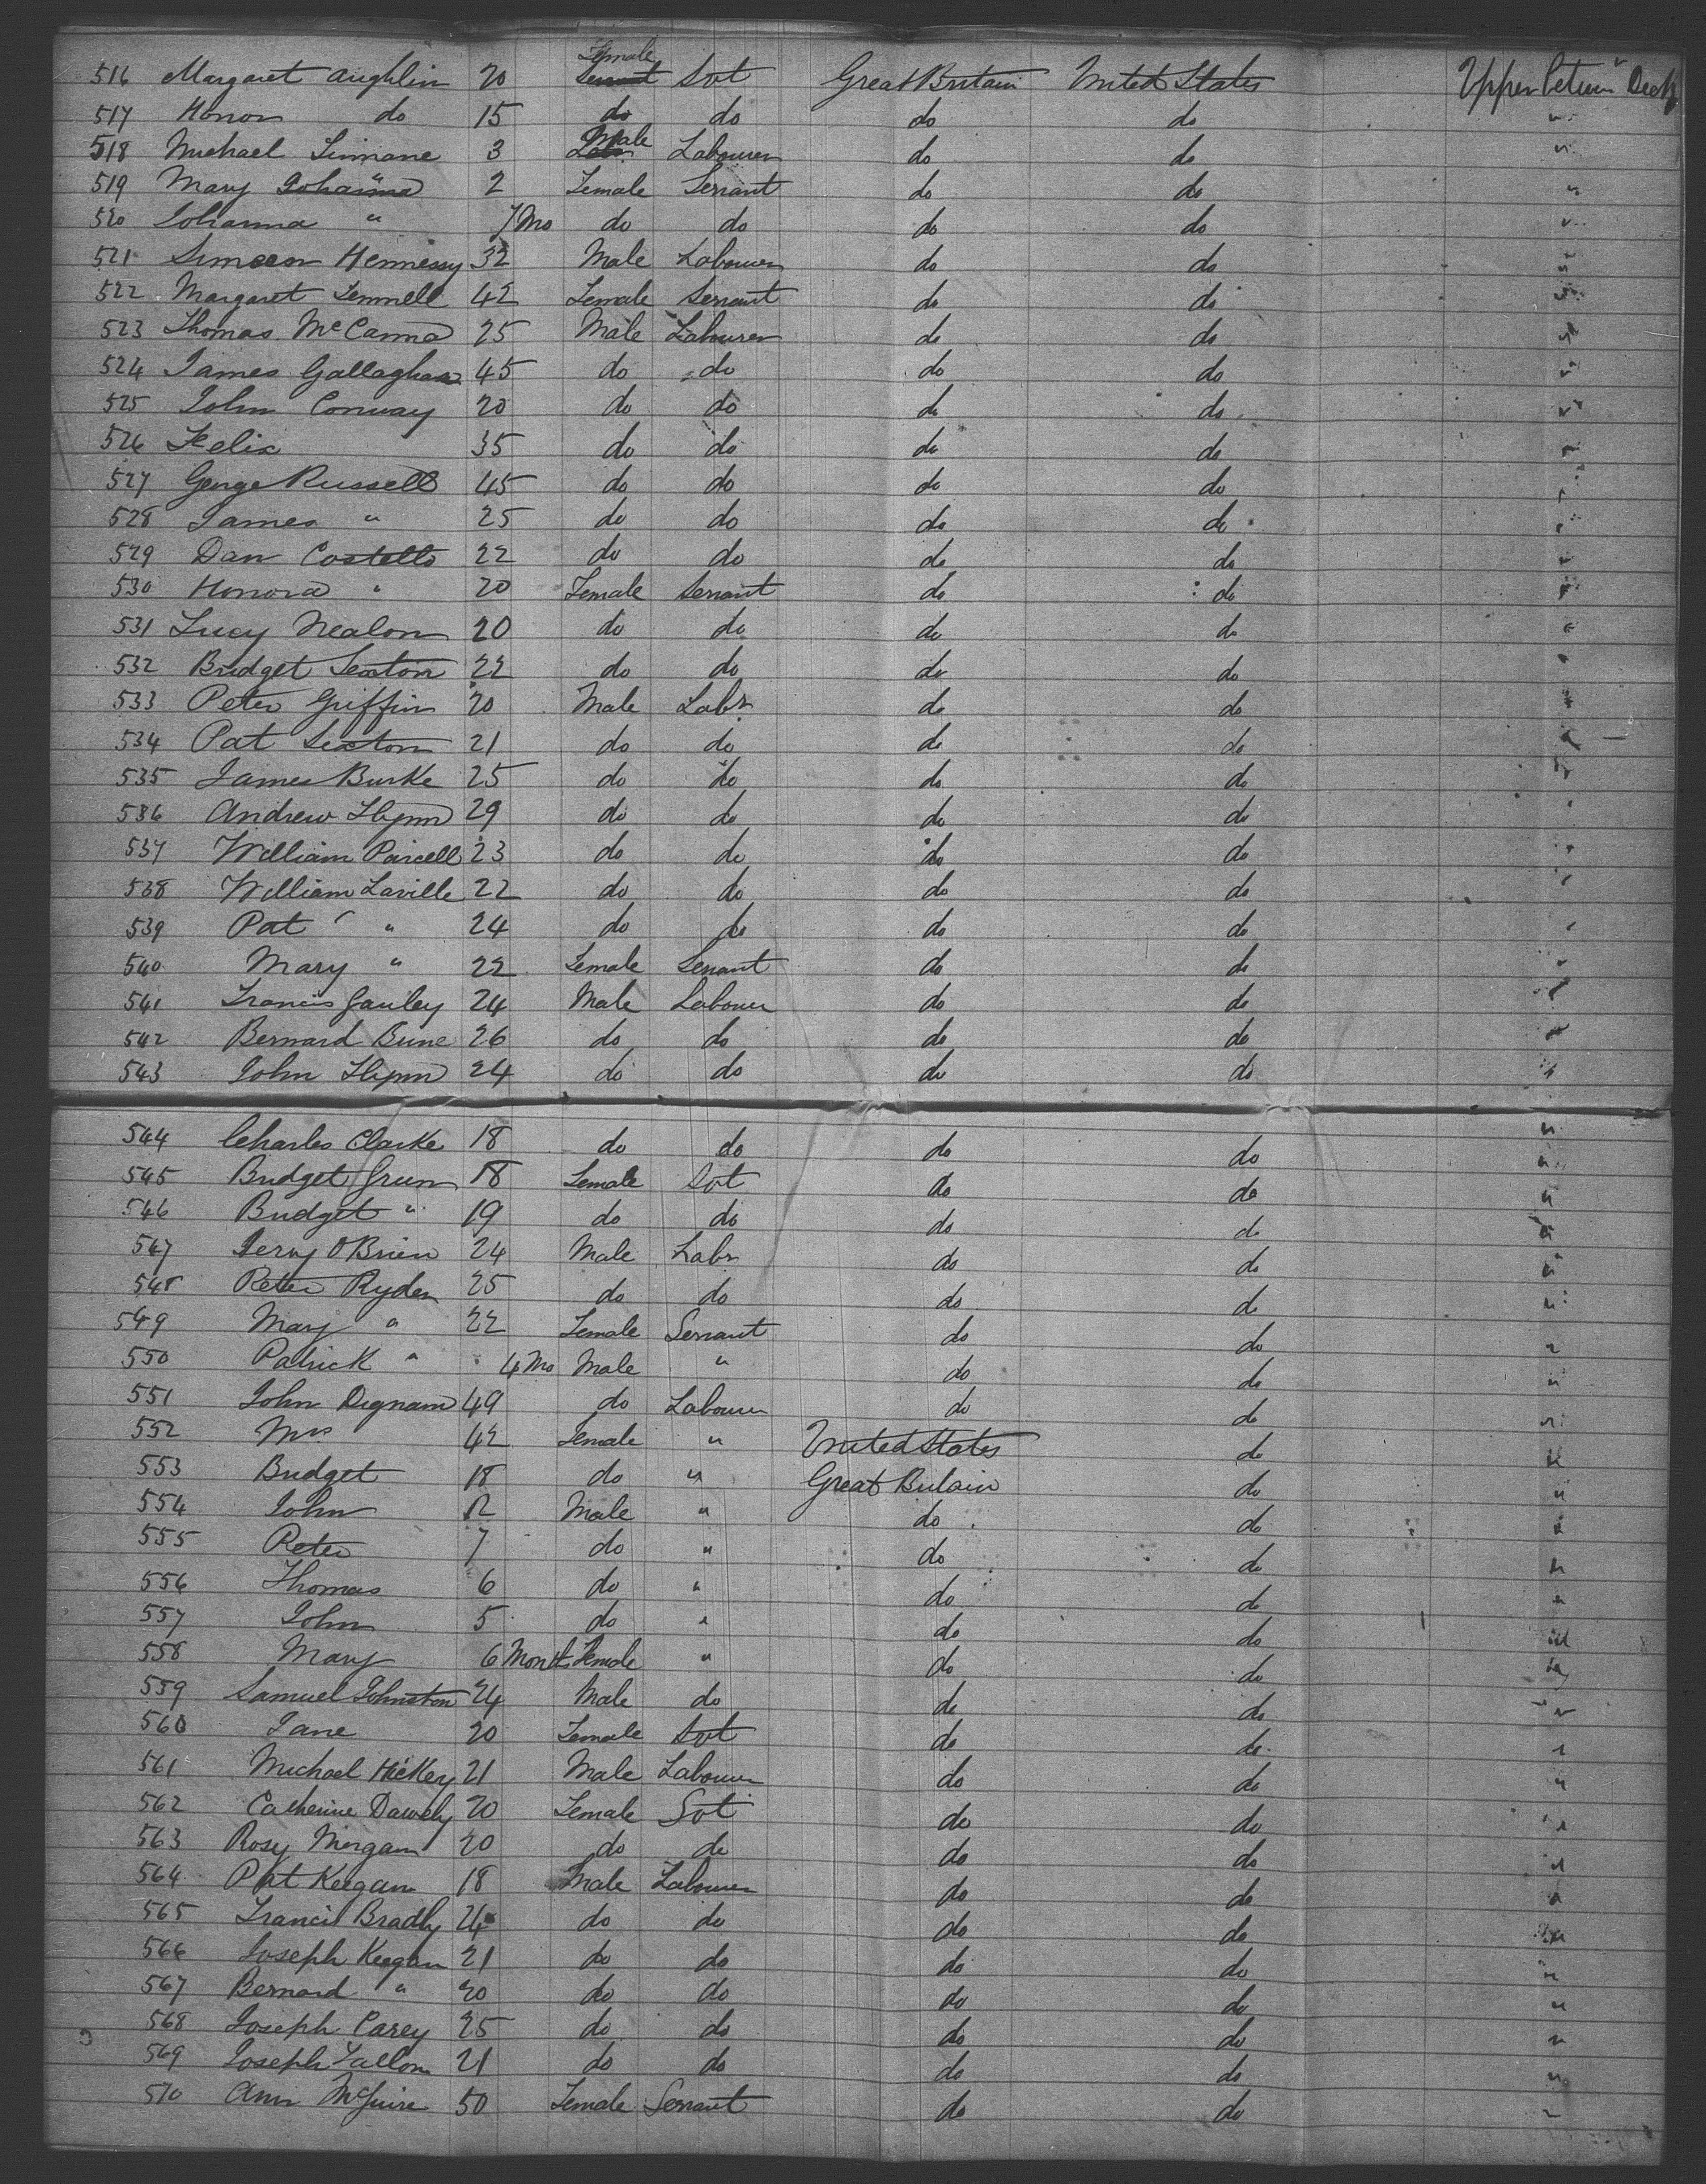 516 Margaret Aughlin 20 Female Servant Svt Great Britain United States Upper betwn Deck
517 Honor do 15 do do do do "
518 Michael Linnane 3 Male Labr Labourer do do "
519 Mary Johanna " 2 Female Servant do do "
520 Johanna " 7 Mo do do do do "
521 Simeon Hennessy 32 Male Labourer do do "
522 Margaret Fennell 42 Female Servant do do "
523 Thomas McCanna 25 Male Labourer do do "
524 James Gallagher 45 do do do do "
525 John Conway 20 do do do do "
526 Felix 35 do do do do "
527 George Russell 45 do do do do "
528 James " 25 do do do do "
529 Dan Costello 22 do do do do "
530 Honora " 20 Female Servant do do "
531 Lucy Nealon 20 do do do do "
532 Bridget Sexton 22 do do do do "
533 Peter Griffin 20 Male Labr do do "
534 Pat Sexton 21 do do do do "
535 James Burke 25 do do do do "
536 Andrew Flynn 29 do do do do "
537 William Parcell 23 do do do do "
538 William Laville 22 do do do do "
539 Pat " 24 do do do do "
540 Mary " 22 Female Servant do do "
541 Francis Gauley 24 Male Labourer do do "
542 Bernard Bune 26 do do do do "
543 John Flynn 24 do do do do "
544 Charles Clarke 18 do do do do "
545 Bridget Green 18 Female Svt do do "
546 Bridget " 19 do do do do "
547 Jerry O'Brien 24 Male Labr do do "
548 Peter Ryder 25 do do do do "
549 Mary " 22 Female Servant do do "
550 Patrick " 4 Mo Male " do do "
551 John Dignam 49 do Labourer do do "
552 Mrs 42 Female " United States do "
553 Bridget 18 do " Great Britain do "
554 John 12 Male " do do "
555 Peter 7 do " do do "
556 Thomas 6 do " do do "
557 John 5 do " do do "
558 Mary 6 Months Female " do do "
559 Samuel Johnston 24 Male do do do "
560 Jane 20 Female Svt do do "
561 Michael Hickey 21 Male Labourer do do "
562 Catherine 20 Female Svt do do "
563 Rosy Morgan 20 do do do do "
564 Pat Keegan 18 Male Labourer do do "
565 Francis Bradly 24 do do do do "
566 Joseph Keegan 21 do do do do "
567 Bernard " 20 do do do do "
568 Joseph Carey 25 do do do do "
569 Joseph Fallon 21 do do do do "
570 Ann McGuire 50 Female Servant do do "